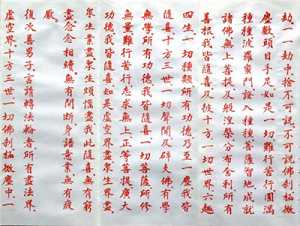 劫一一劫中捨不可說不可說佛剎極微
塵數頭目手足如是一切難行苦行圓滿
種種波羅蜜門證入種種菩薩智地成就
諸佛無上菩提及般涅槃分布舍利所有
善根我皆隨喜及彼十方一切世界六趣
四生一切種類所有功德乃至一塵我皆
隨喜十方三世一切聲聞及辟支佛有學
無學所有功德我皆隨喜一切菩薩所修
無量難行苦行志求無上正等菩提廣大
功德我皆隨喜如是虛空界盡眾生界盡
眾生業盡眾生煩惱盡我此隨喜無有窮
盡念念相續無有間斷身語意業無有疲
厭
復次善男子言請轉法輪者所有盡法界
虛空界十方三世一切佛剎極微塵中一